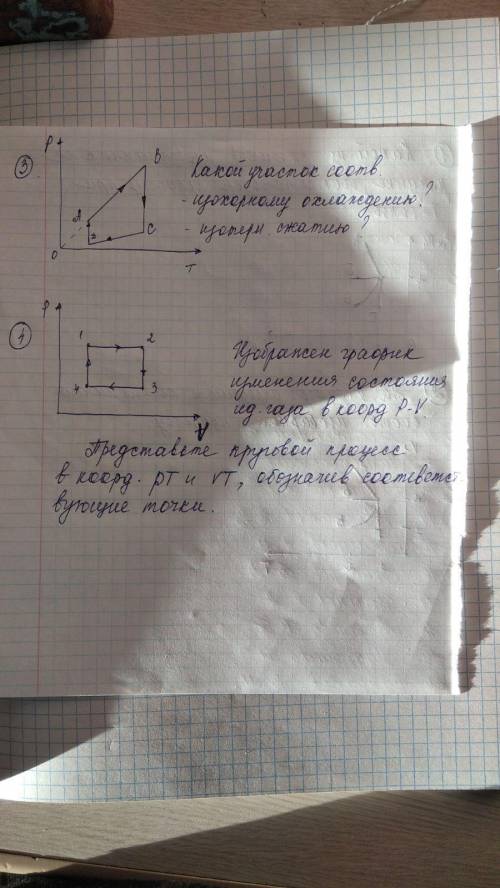 ③
P
B
A
D
C
O
T
Какой участок соотв.
- изохорному охлаждению?
- изотерм. сжатию?
④
P
1
2
4
3
V
Изображен график
изменения состояния
ид. газа в коорд P-V
Представьте круговой процесс
в коорд. pT и VT, обозначив соответст
вующие точки.